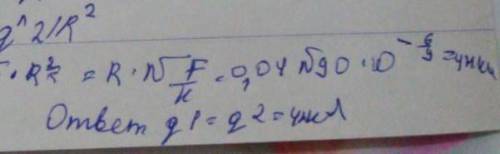 q^2/R^2
· R^2 = R · √F/k = 0,04 √90 · 10^-6/9 = 4нкл
Ответ q1 = q2 = 4нкл